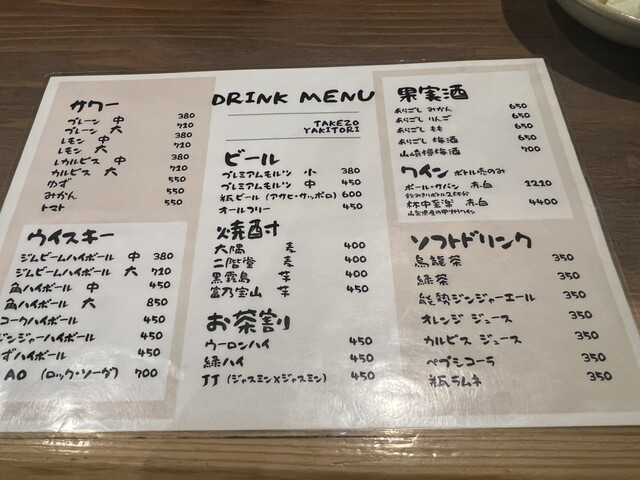 サワー
プレーン 中 380
プレーン 大 710
レモン 中 380
レモン 大 710
カルピス 中 380
カルピス 大 710
ゆず 550
みかん 550
トマト 550
ウイスキー
ジムビームハイボール 中 380
ジムビームハイボール 大 710
角ハイボール 中 450
角ハイボール 大 850
コークハイボール 450
ジンジャーハイボール 450
ずハイボール 450
AO (ロック・ソーダ) 700
DRINK MENU
TAKEZO
YAKITORI
ビール
プレミアムモルツ 小 380
プレミアムモルツ 中 450
瓶ビール (アサヒ・サッポロ) 600
オールフリー 450
焼酎
大隅 麦 400
二階堂 麦 400
黒霧島 芋 400
富乃宝山 芋 450
お茶割
ウーロンハイ 450
緑ハイ 450
JJ (ジャスミン×ジャスミン) 450
果実酒
あらごし みかん 650
あらごし りんご 650
あらごし もも 650
あらごし 梅酒 650
山崎樽梅酒 700
ワイン ボトル売のみ
ポール・サパン 赤・白 1210
飲みきりボトル2杯分
杯中至楽 赤・白 4400
山梨県産の甲州ワイン
ソフトドリンク
烏龍茶 350
緑茶 350
能勢ジンジャーエール 350
オレンジ ジュース 350
カルピス ジュース 350
ペプシコーラ 350
瓶ラムネ 350